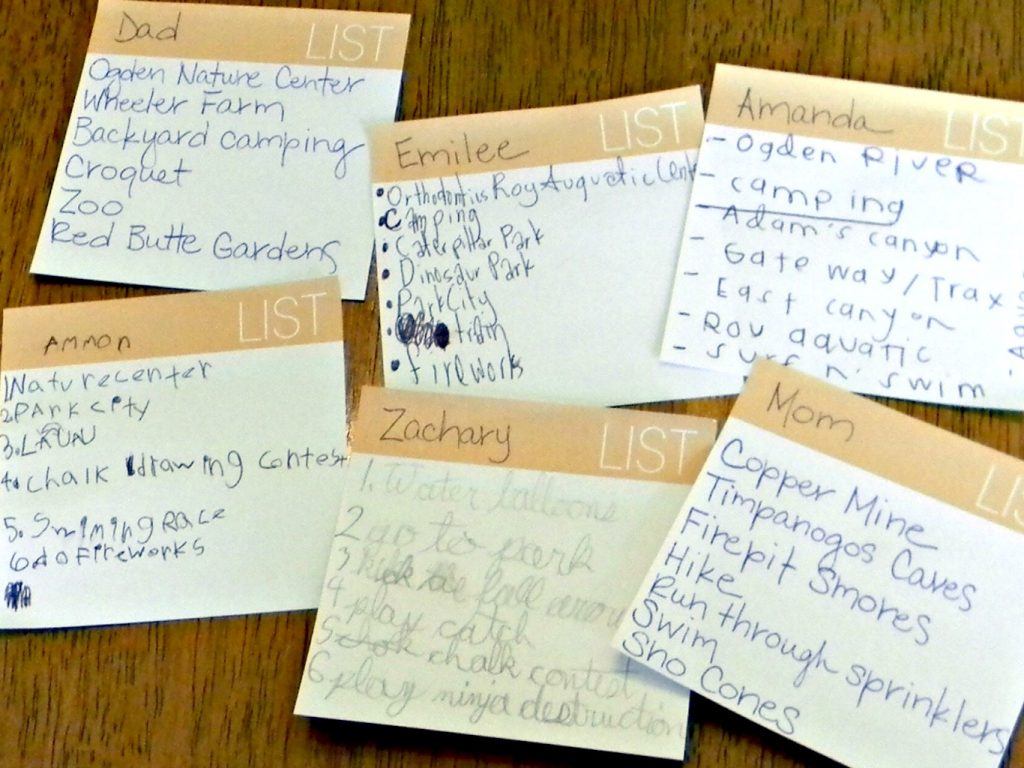 Dad
LIST
Ogden Nature Center
Wheeler Farm
Backyard camping
Croquet
Zoo
Red Butte Gardens
Emilee
LIST
• Roy Auquatic Cent
• Camping
• Caterpillar Park
• Dinosaur Park
• Park City
•
• fireworks
Amanda
LIST
- Ogden River
- camping
- Adam's canyon
- Gateway/Trax
- East canyon
- Roy aquatic
- surf n' swim
Ammon
LIST
1 Naturecenter
2. PArk city
3.
4. chalk drawing contest
5. Swiming Race
6 do fireworks
Zachary
LIST
1. Water balloons
2 go to park
3 kick the ball aroun
4 play catch
5 chalk contest
6 play ninja destruction
Mom
LIS
Copper Mine
Timpanogos Caves
Firepit Smores
Hike
Run through sprinklers
Swim
Sno Cones